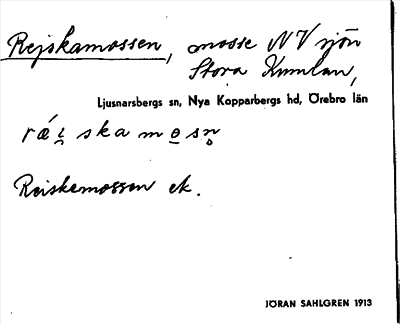 Rejskamossen, mosse NV sjön
Stora Kumlan,
Ljusnarsbergs sn, Nya Kopparbergs hd, Örebro län
ræ´i̯skamo̲sn̥
Reiskemossen ek.
JÖRAN SAHLGREN 1913